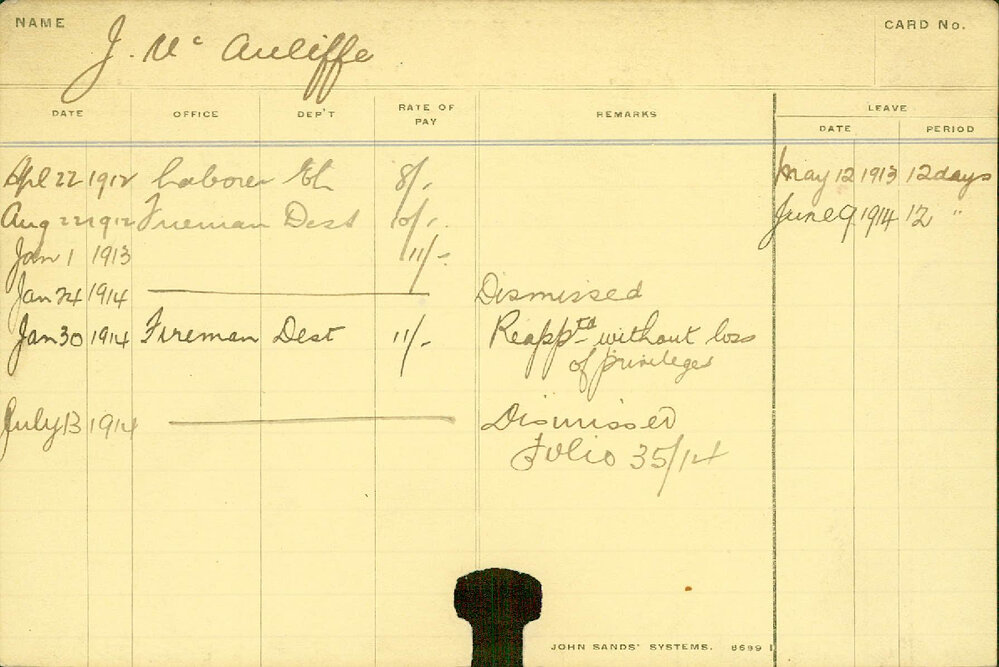 NAME J. Mc Auliffe CARD No.
DATE OFFICE DEP'T RATE OF PAY REMARKS LEAVE
DATE PERIOD
Apl 22 1912 Laborer 8/- May 12 1913 12 days
Aug 22 1912 Fireman Dest 10/- June 9 1914 12 "
Jan 1 1913 11/-
Jan 24 1914 Dismissed
Jan 30 1914 Fireman Dest 11/- Reapptd without loss
of privileges
July 13 1914 Dismissed
Folio 35/14
JOHN SANDS' SYSTEMS. 8699